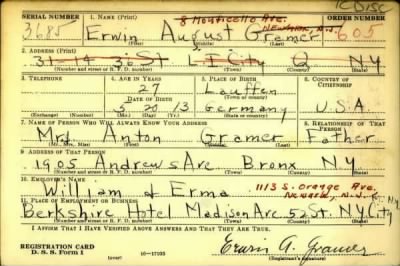 SERIAL NUMBER 1. NAME (Print) 8 Monticello Ave. ORDER NUMBER
3685 Erwin August Gramer Newark, N.J. 605
(First) (Middle) (Last)
2. ADDRESS (Print)
31-14 36 St L I City Q NY
(Number and street or R. F. D. number) (Town) (County) (State)
3. TELEPHONE 4. AGE IN YEARS 5. PLACE OF BIRTH 6. COUNTRY OF CITIZENSHIP
27 Lauffen
DATE OF BIRTH (Town or county)
5 20 13 Germany U.S.A.
(Exchange) (Number) (Mo.) (Day) (Yr.) (State or country)
7. NAME OF PERSON WHO WILL ALWAYS KNOW YOUR ADDRESS 8. RELATIONSHIP OF THAT PERSON
Mr. Anton Gramer Father
(Mr., Mrs., Miss) (First) (Middle) (Last)
9. ADDRESS OF THAT PERSON
1905 Andrews Ave Bronx N.Y.
(Number and street or R. F. D. number) (Town) (County) (State)
10. EMPLOYER'S NAME 1113 S. Orange Ave.
William & Erma Newark, N.J.
11. PLACE OF EMPLOYMENT OR BUSINESS
Berkshire Hotel Madison Ave. 52 St. N.Y. City N.Y.
(Number and street or R. F. D. number) (Town) (County) (State)
I AFFIRM THAT I HAVE VERIFIED ABOVE ANSWERS AND THAT THEY ARE TRUE.
REGISTRATION CARD
D. S. S. FORM 1 (over) 16-17105 Erwin A. Gramer